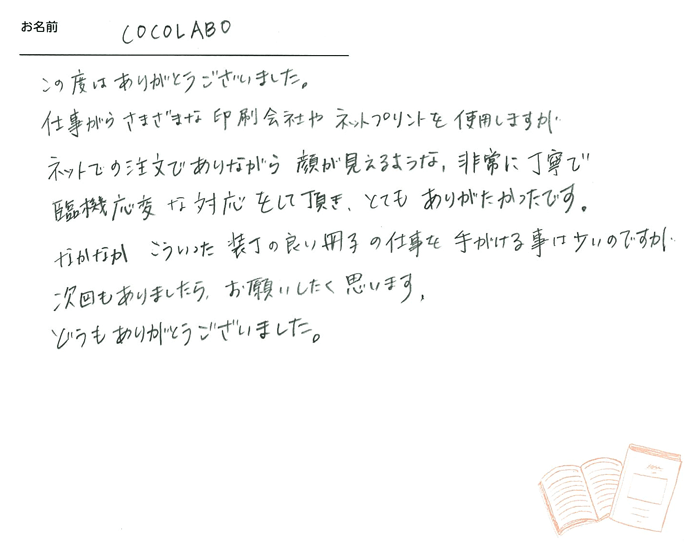 お名前 COCOLABO
この度はありがとうございました。
仕事がらさまざまな印刷会社やネットプリントを使用しますが
ネットでの注文でありながら顔が見えるような、非常に丁寧で
臨機応変な対応をして頂き、とてもありがたかったです。
なかなかこういった装丁の良い冊子の仕事を手がける事は少いのですが
次回もありましたら、お願いしたく思います。
どうもありがとうございました。